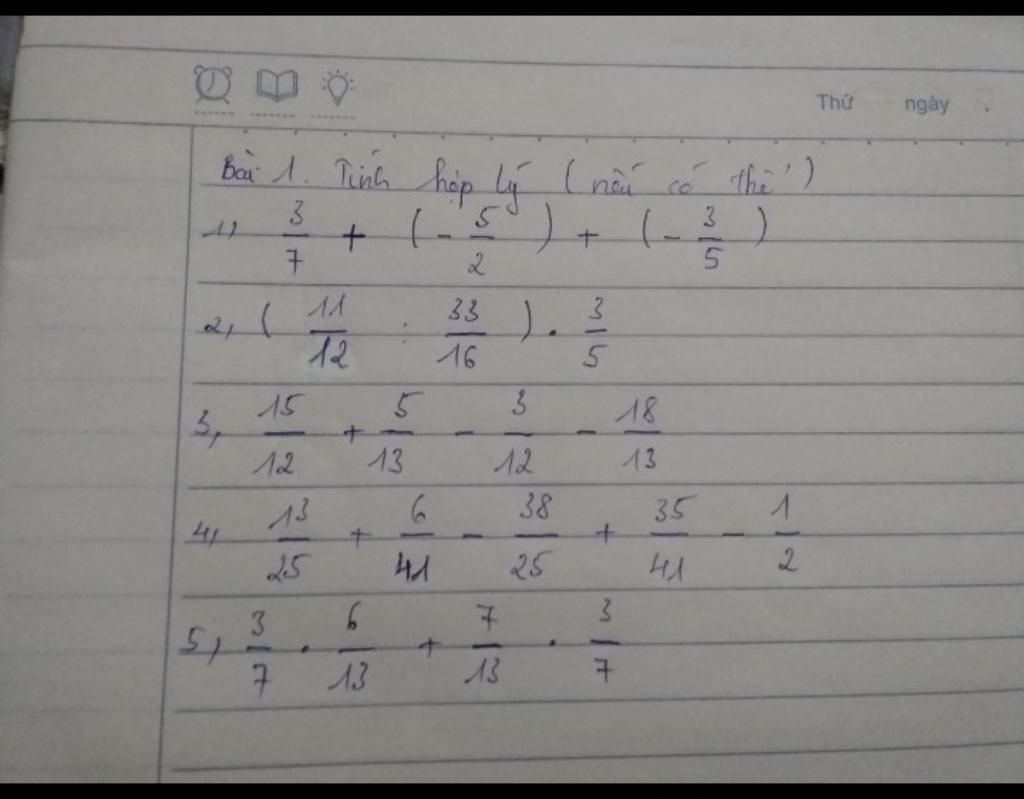 Thứ ngày .
Bài 1. Tính hợp lý (nếu có thể)
1) 3/7 + (- 5/2) + (- 3/5)
2, (11/12 : 33/16) . 3/5
3, 15/12 + 5/13 - 3/12 - 18/13
4, 13/25 + 6/41 - 38/25 + 35/41 - 1/2
5, 3/7 . 6/13 + 7/13 . 3/7